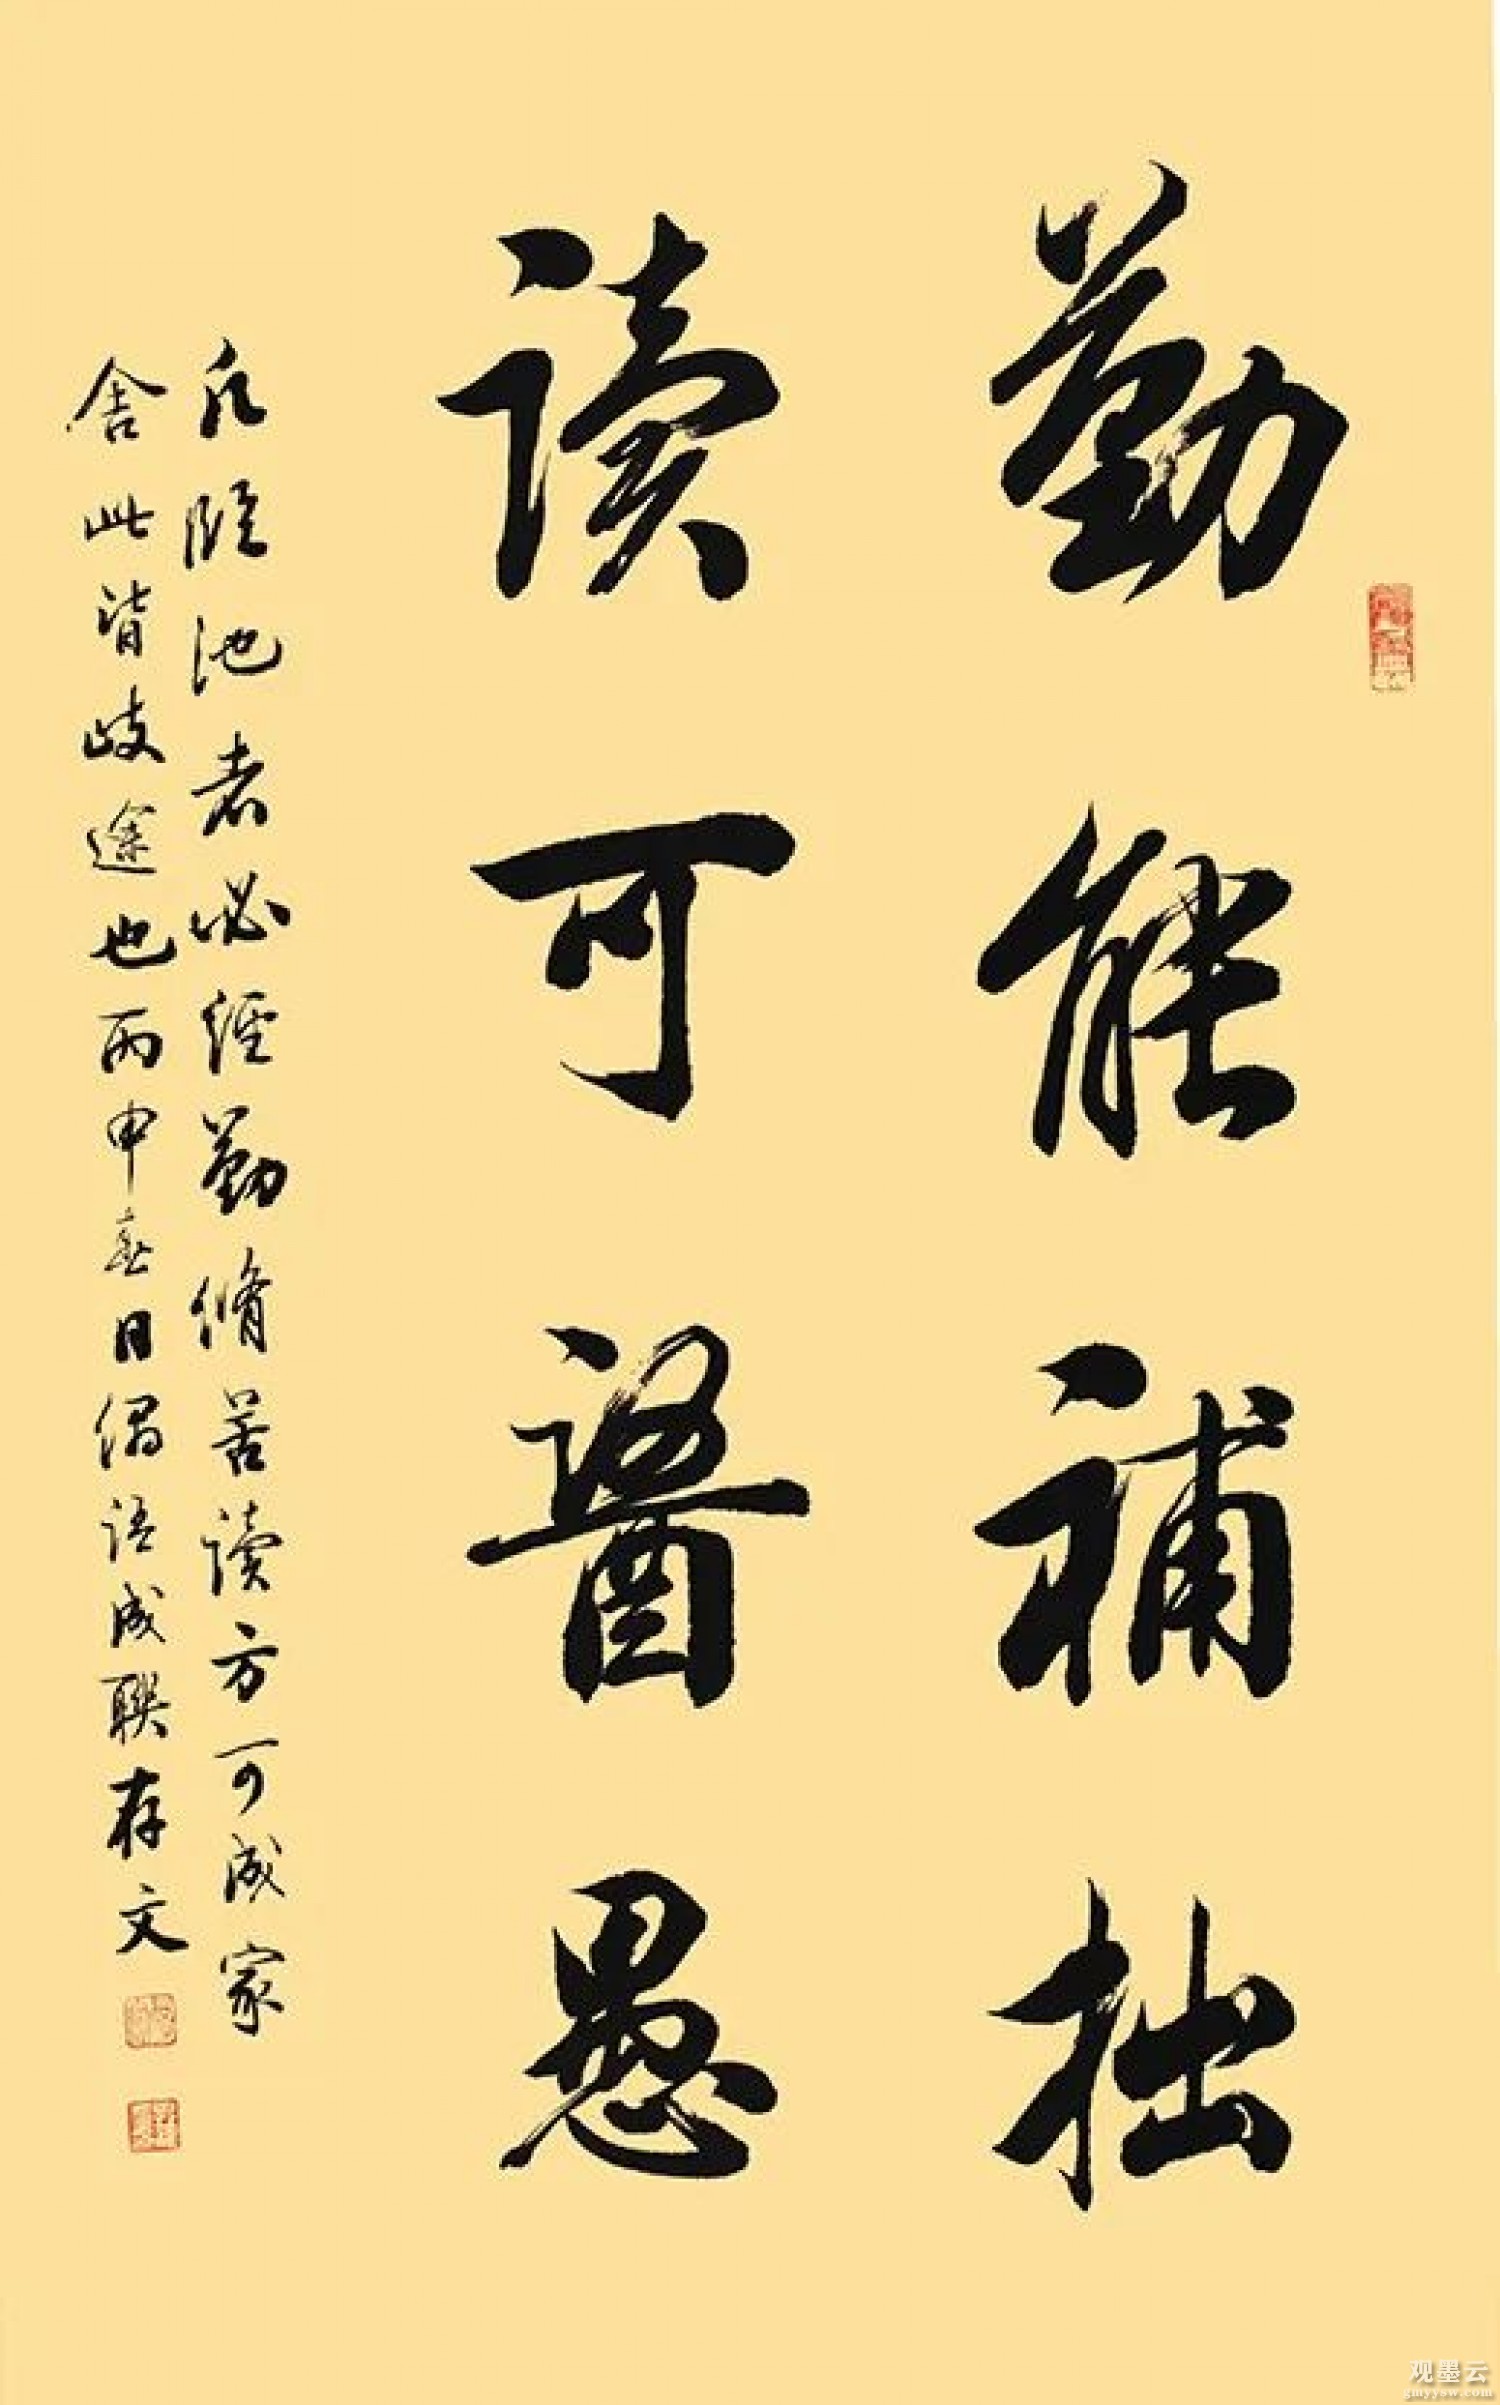 勤能補拙
讀可醫愚
凡臨池者必經勤脩苦讀方可成家
舍此皆歧途也丙申春日偶語成聯存文
观墨云
gmyysw.com